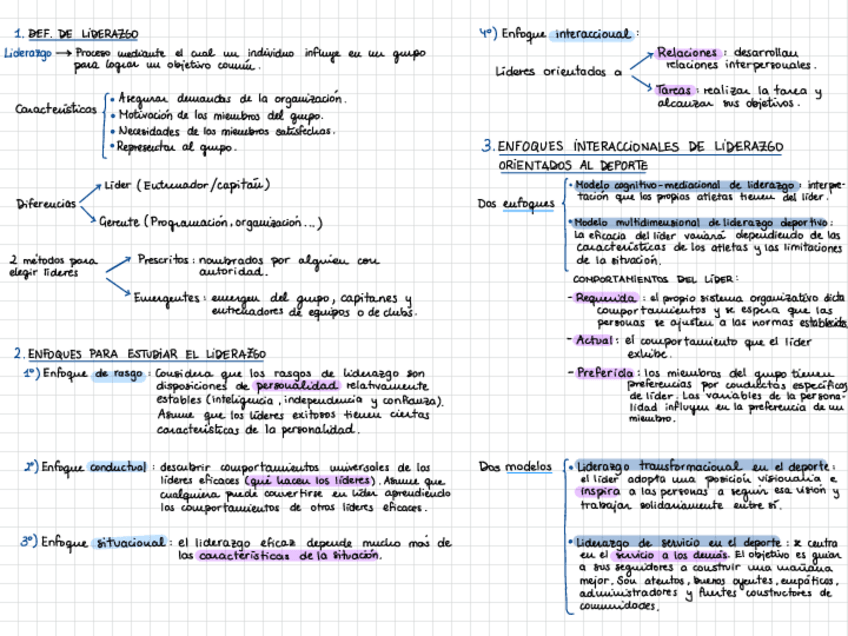 1. DEF. DE LiDERAZGO
Liderazgo → Proceso mediante el cual un individuo influye en un grupo
para lograr un objetivo común.
Características
• Asegurar demandas de la organización.
• Motivación de los miembros del grupo.
• Necesidades de los miembros satisfechas.
• Representar al grupo.
Diferencias
Líder (Entrenador/capitán)
Gerente (Programación, organización...)
2 métodos para
elegir líderes
Prescritos : nombrados por alguien con
autoridad.
Emergentes : emergen del grupo, capitanes y
entrenadores de equipos o de clubs.
2. ENFOQUES PARA ESTUDIAR EL LiDERAZGO
1º) Enfoque de rasgo : Considera que los rasgos de liderazgo son
disposiciones de personalidad relativamente
estables (inteligencia, independencia y confianza).
Asume que los líderes exitosos tienen ciertas
características de la personalidad.
2º) Enfoque conductual : descubrir comportamientos universales de los
líderes eficaces (qué hacen los líderes). Asume que
cualquiera puede convertirse en líder aprendiendo
los comportamientos de otros líderes eficaces.
3º) Enfoque situacional : el liderazgo eficaz depende mucho más de
las características de la situación.
4º) Enfoque interaccional :
Líderes orientados a
Relaciones : desarrollan
relaciones interpersonales.
Tareas : realizar la tarea y
alcanzar sus objetivos.
3. ENFOQUES iNTERACCIONALES DE LiDERAZGO
ORiENTADOS AL DEPORTE
Dos enfoques
• Modelo cognitivo-mediacional de liderazgo : interpre-
tación que los propios atletas tienen del líder.
• Modelo multidimensional de liderazgo deportivo :
la eficacia del líder variará dependiendo de las
características de los atletas y las limitaciones
de la situación.
COMPORTAMIENTOS DEL LÍDER :
- Requerida : el propio sistema organizativo dicta
comportamientos y se espera que las
personas se ajusten a las normas establecidas
- Actual : el comportamiento que el líder
exhibe.
- Preferida : los miembros del grupo tienen
preferencias por conductas específicas
de líder. Las variables de la persona-
lidad influyen en la preferencia de un
miembro.
Dos modelos
• Liderazgo transformacional en el deporte :
el líder adopta una posición visionaria e
inspira a las personas a seguir esa visión y
trabajar solidariamente entre sí.
• Liderazgo de servicio en el deporte : se centra
en el servicio a los demás. El objetivo es guiar
a sus seguidores a construir una mañana
mejor. Son atentos, buenos oyentes, empáticos,
administradores y fuertes constructores de
comunidades.